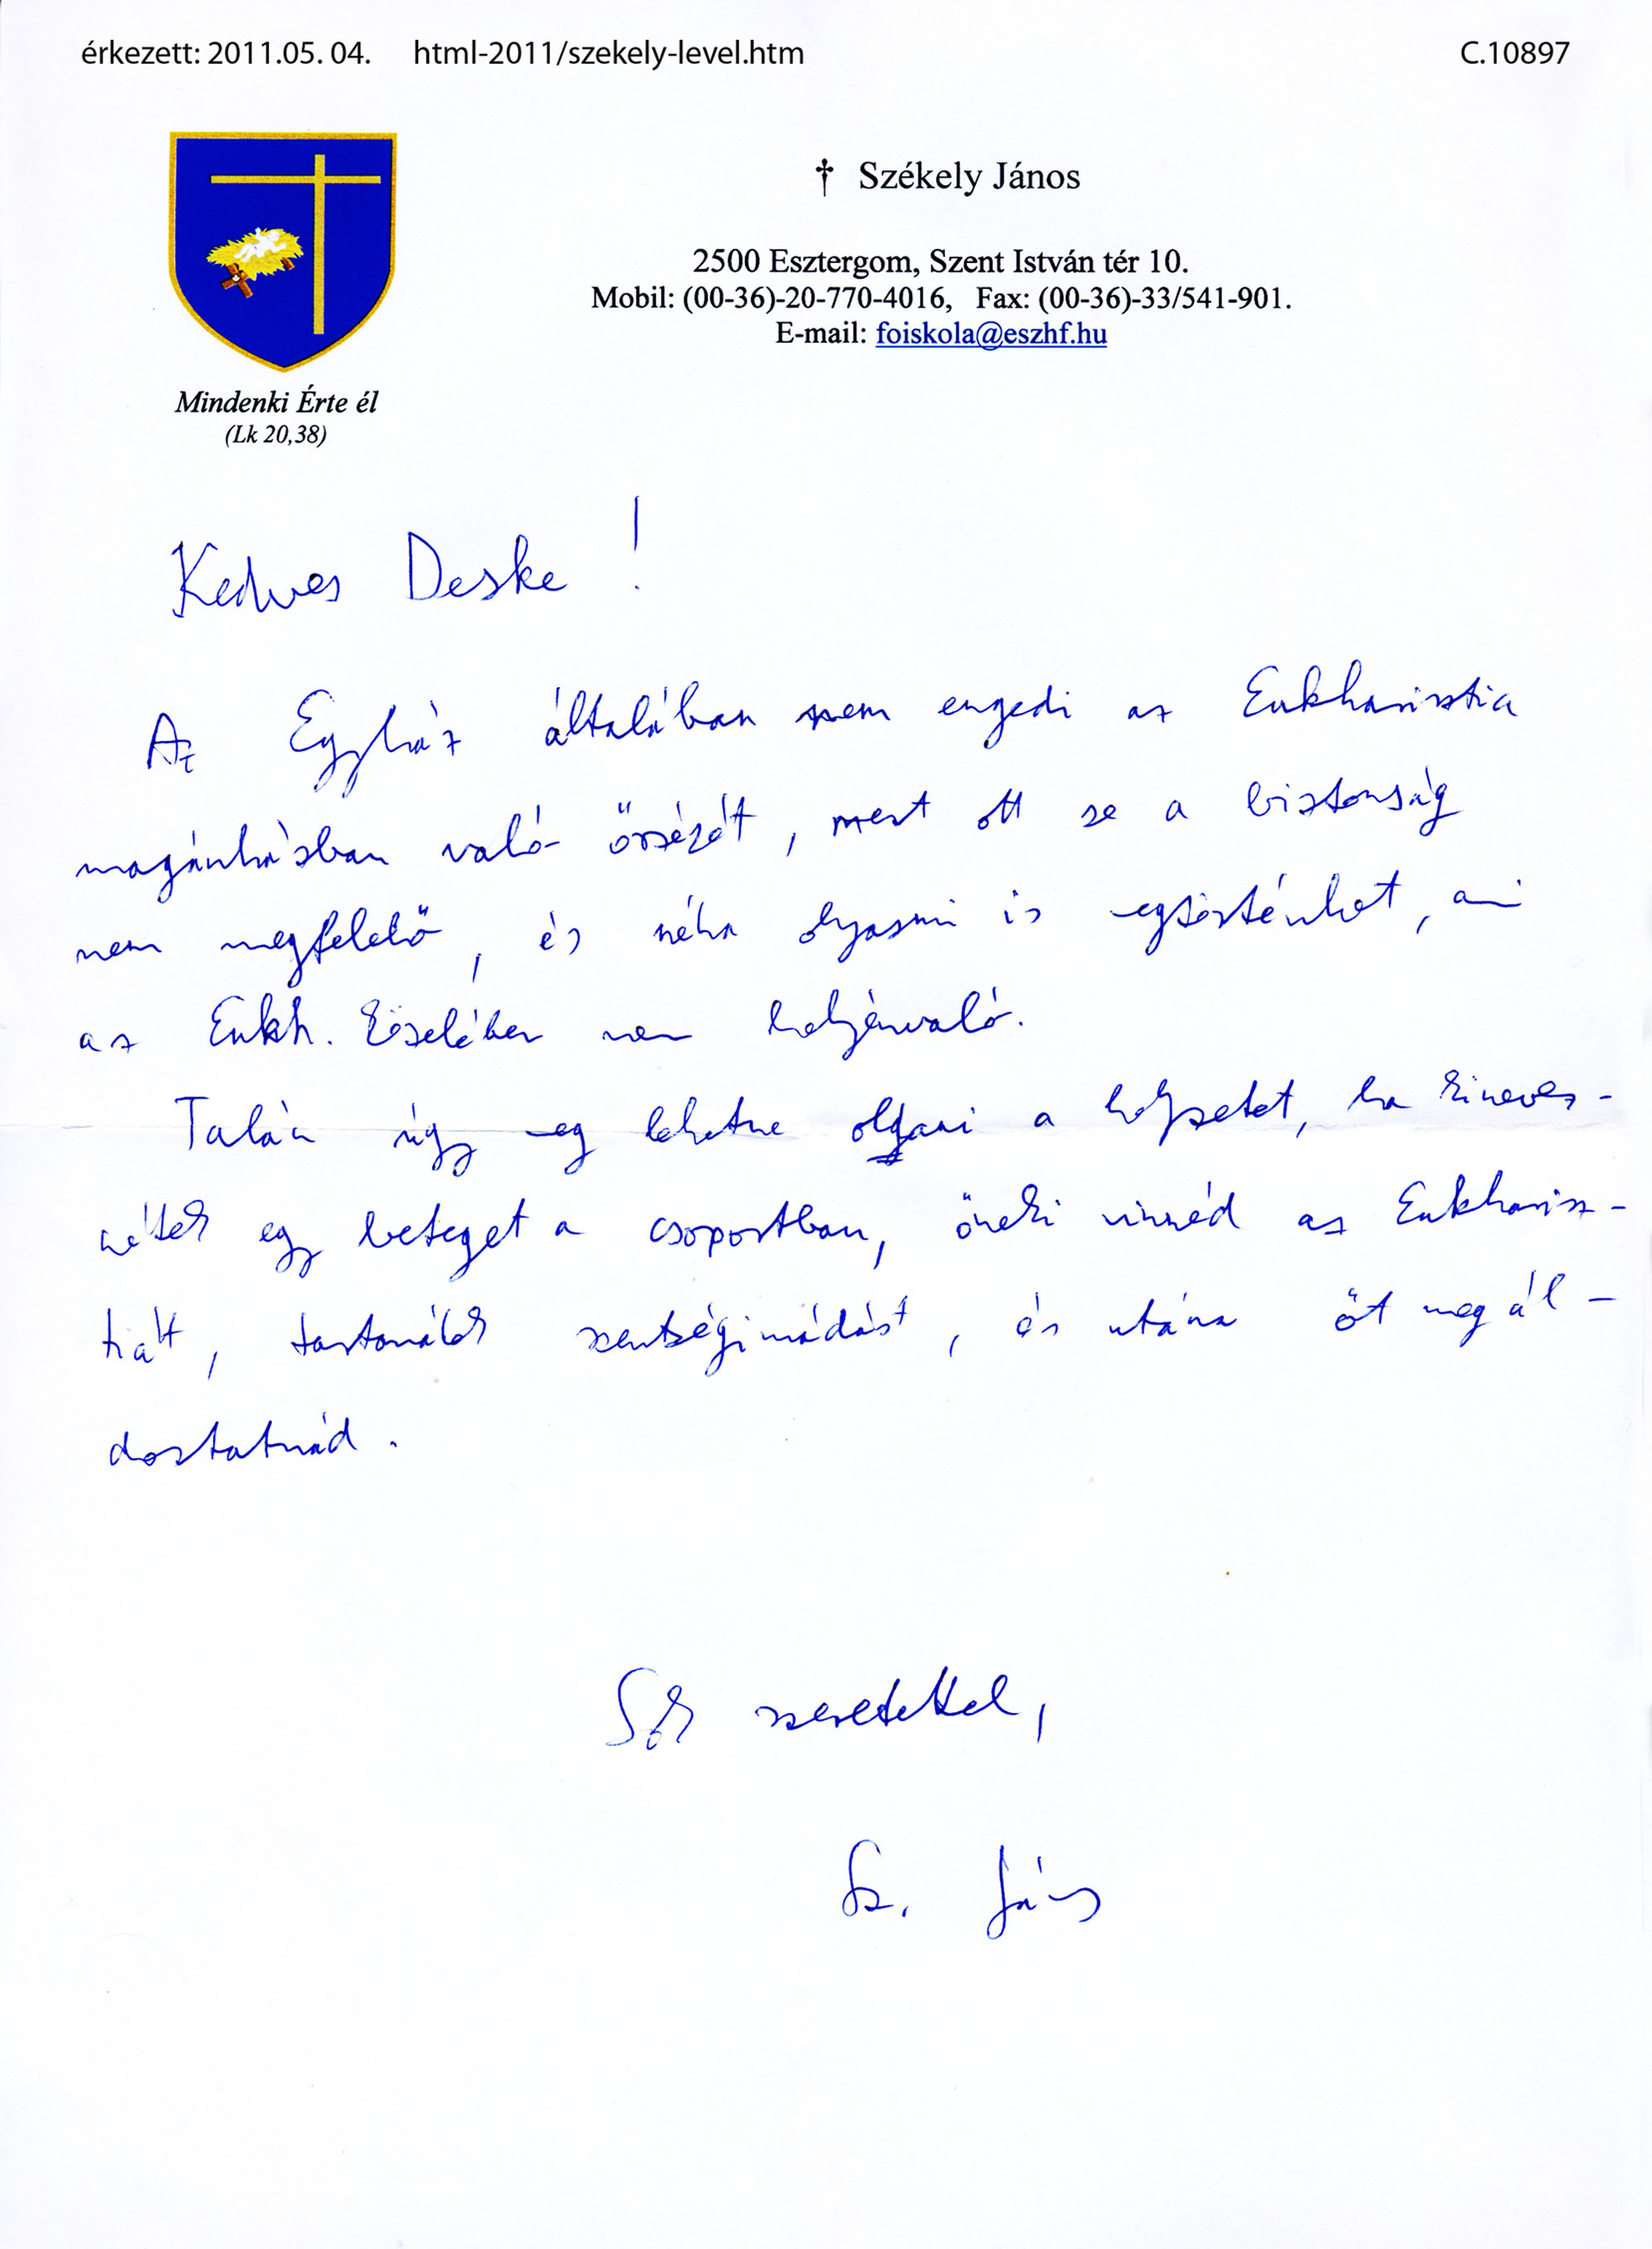 érkezett: 2011.05. 04. html-2011/szekely-level.htm C.10897
† Székely János
2500 Esztergom, Szent István tér 10.
Mobil: (00-36)-20-770-4016, Fax: (00-36)-33/541-901.
E-mail: foiskola@eszhf.hu
Mindenki Érte él
(Lk 20,38)
Kedves Deske!
Az Egyház általában nem engedi az Eukharisztia
magánházban való őrzését, mert ott se a biztonság
nem megfelelő, és néha olyasmi is egtörténhet, ami
az Eukh. közelében nem helyénvaló.
Talán úgy eg lehetne olgani a helyzetet, ha kinevez-
nétek egy beteget a csoportban, őneki vinnéd az Eukharisz-
tiát, tartanátok szentségimádást, és utána őt megál-
doztatnád.
Sok szeretettel,
Sz. János